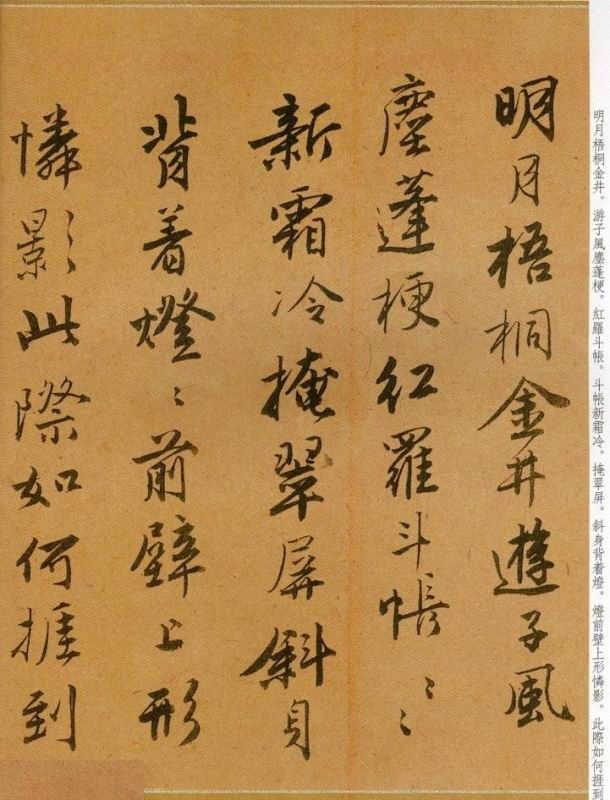 明月梧桐金井遊子風
塵蓬梗紅羅斗帳〻〻
新霜冷掩翠屏斜身
背着燈〻前壁上形
憐影此際如何捱到
明月梧桐金井。游子風塵蓬梗。紅羅斗帳。斗帳新霜冷。掩翠屏。斜身背着燈。燈前壁上形憐影。此際如何捱到